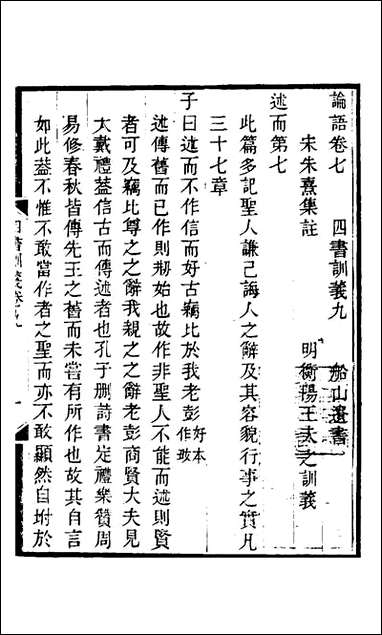 論語卷七 四書訓義九 船山遺書
宋朱熹集註 明衡陽王夫之訓義
述而第七
此篇多記聖人謙己誨人之辭及其容貌行事之實凡
三十七章
子曰述而不作信而好古竊比於我老彭好本作敢
述傳舊而已作則剏始也故作非聖人不能而述則賢
者可及竊比尊之之辭我親之之辭老彭商賢大夫見
大戴禮葢信古而傳述者也孔子刪詩書定禮樂贊周
易修春秋皆傳先王之舊而未嘗有所作也故其自言
如此葢不惟不敢當作者之聖而亦不敢顯然自附於
四書訓義卷九